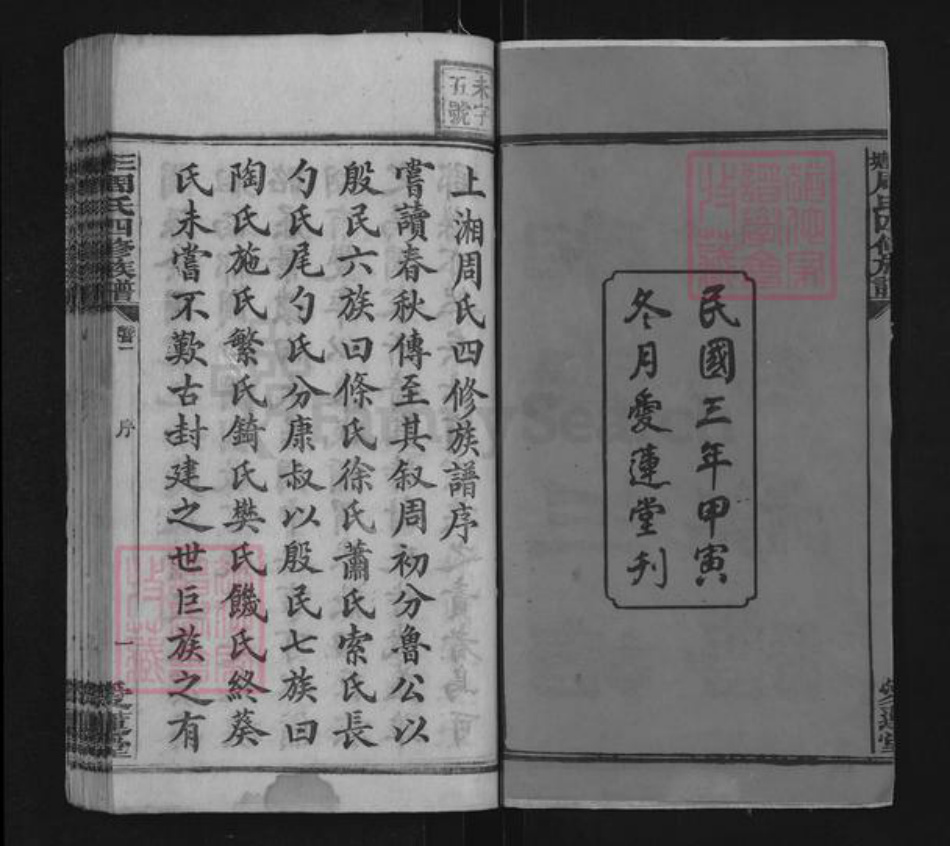 民國三年甲寅
冬月愛蓮堂刊
未字
五號
上湘周氏四修族譜序
嘗讀春秋傳至其叙周初分魯公以
殷民六族曰條氏徐氏蕭氏索氏長
勺氏尾勺氏分康叔以殷民七族曰
陶氏施氏繁氏錡氏樊氏饑氏終葵
氏未嘗不歎古封建之世巨族之有
周氏四修族譜
序
一
愛蓮堂